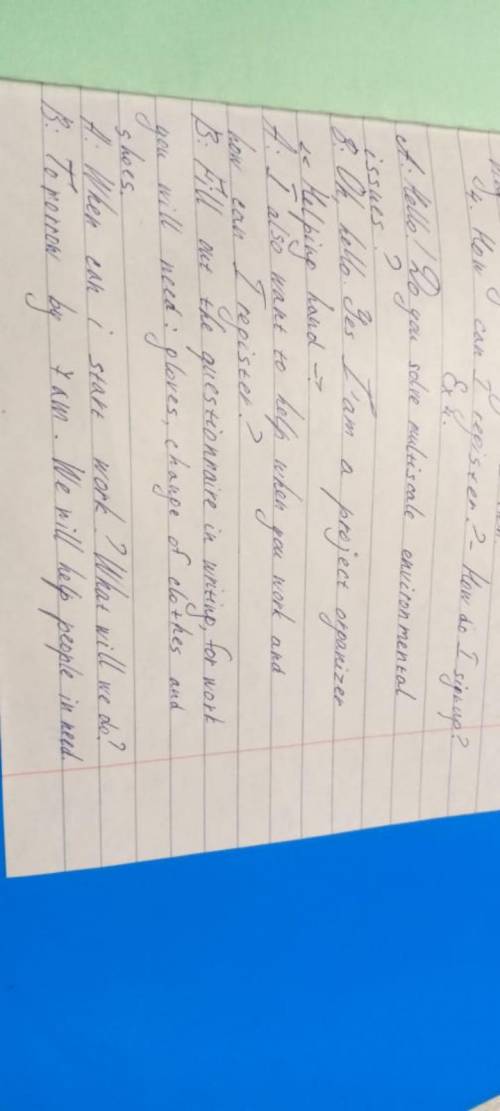 4. How can I register? - How do I sign up?
Ex 4.
A: Hello! Do you solve multiscale environmental
issues?
B: Oh hello. Yes I'am a project organizer
<< Helping hand ->
A: I also want to help when you work and
how can I register?
B: Fill out the questionnaire in writing, for work
you will need: gloves, change of clothes and
shoes.
A: When can i start work? What will we do?
B: Tomorrow by 7 am. We will help people in need.